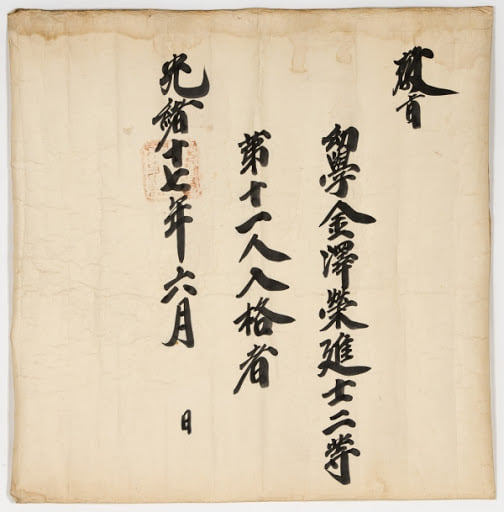 敎旨
幼學金澤榮進士二等
第十一人入格者
光緖十七年六月 日